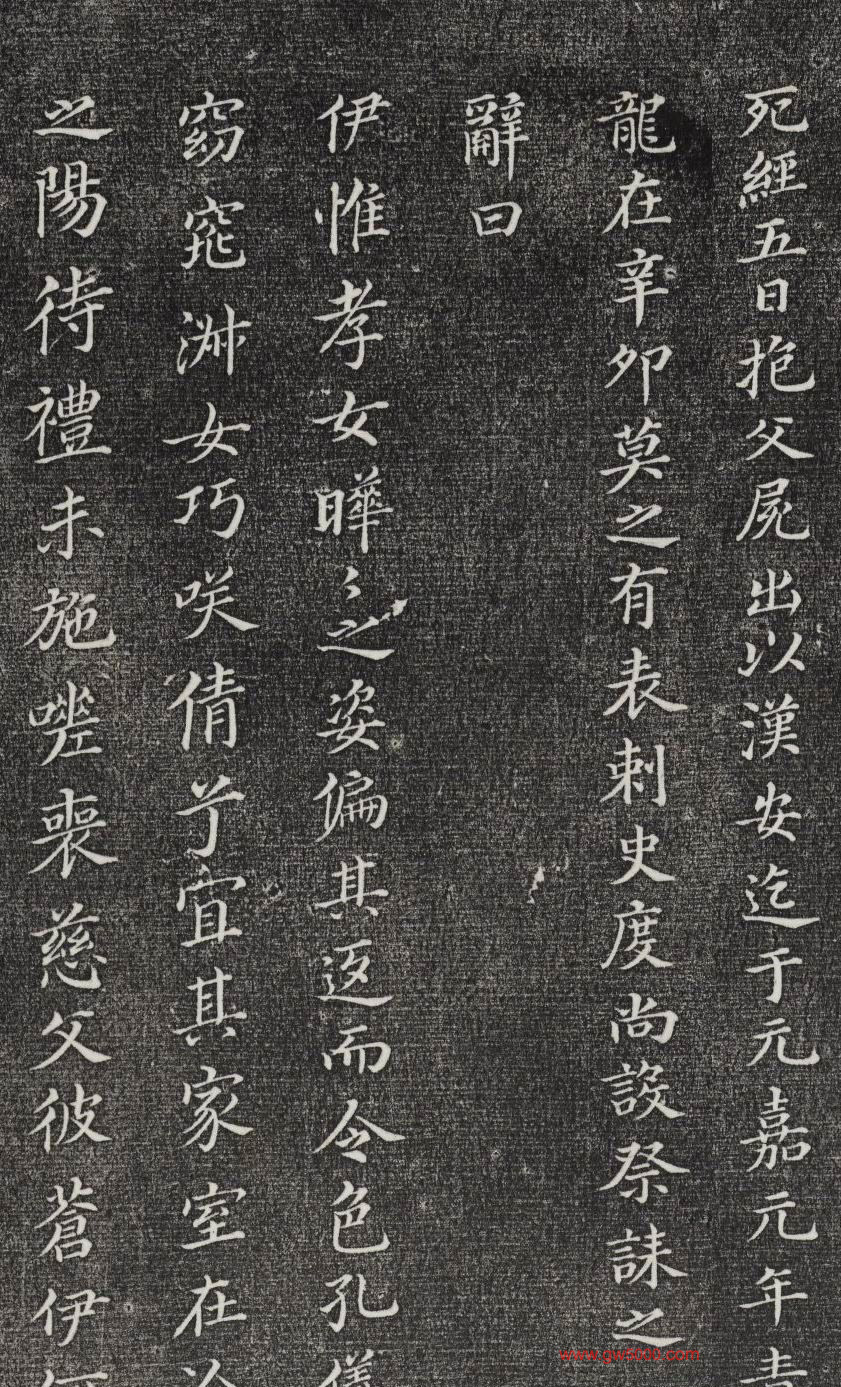 死經五日抱父屍出以漢安迄于元嘉元年青
龍在辛卯莫之有表刺史度尚設祭誄之
辭曰
伊惟孝女曄〻之姿偏其返而令色孔儀
窈窕淑女巧咲倩兮宜其家室在洽
之陽待禮未施嗟喪慈父彼蒼伊何
www.gw5000.com